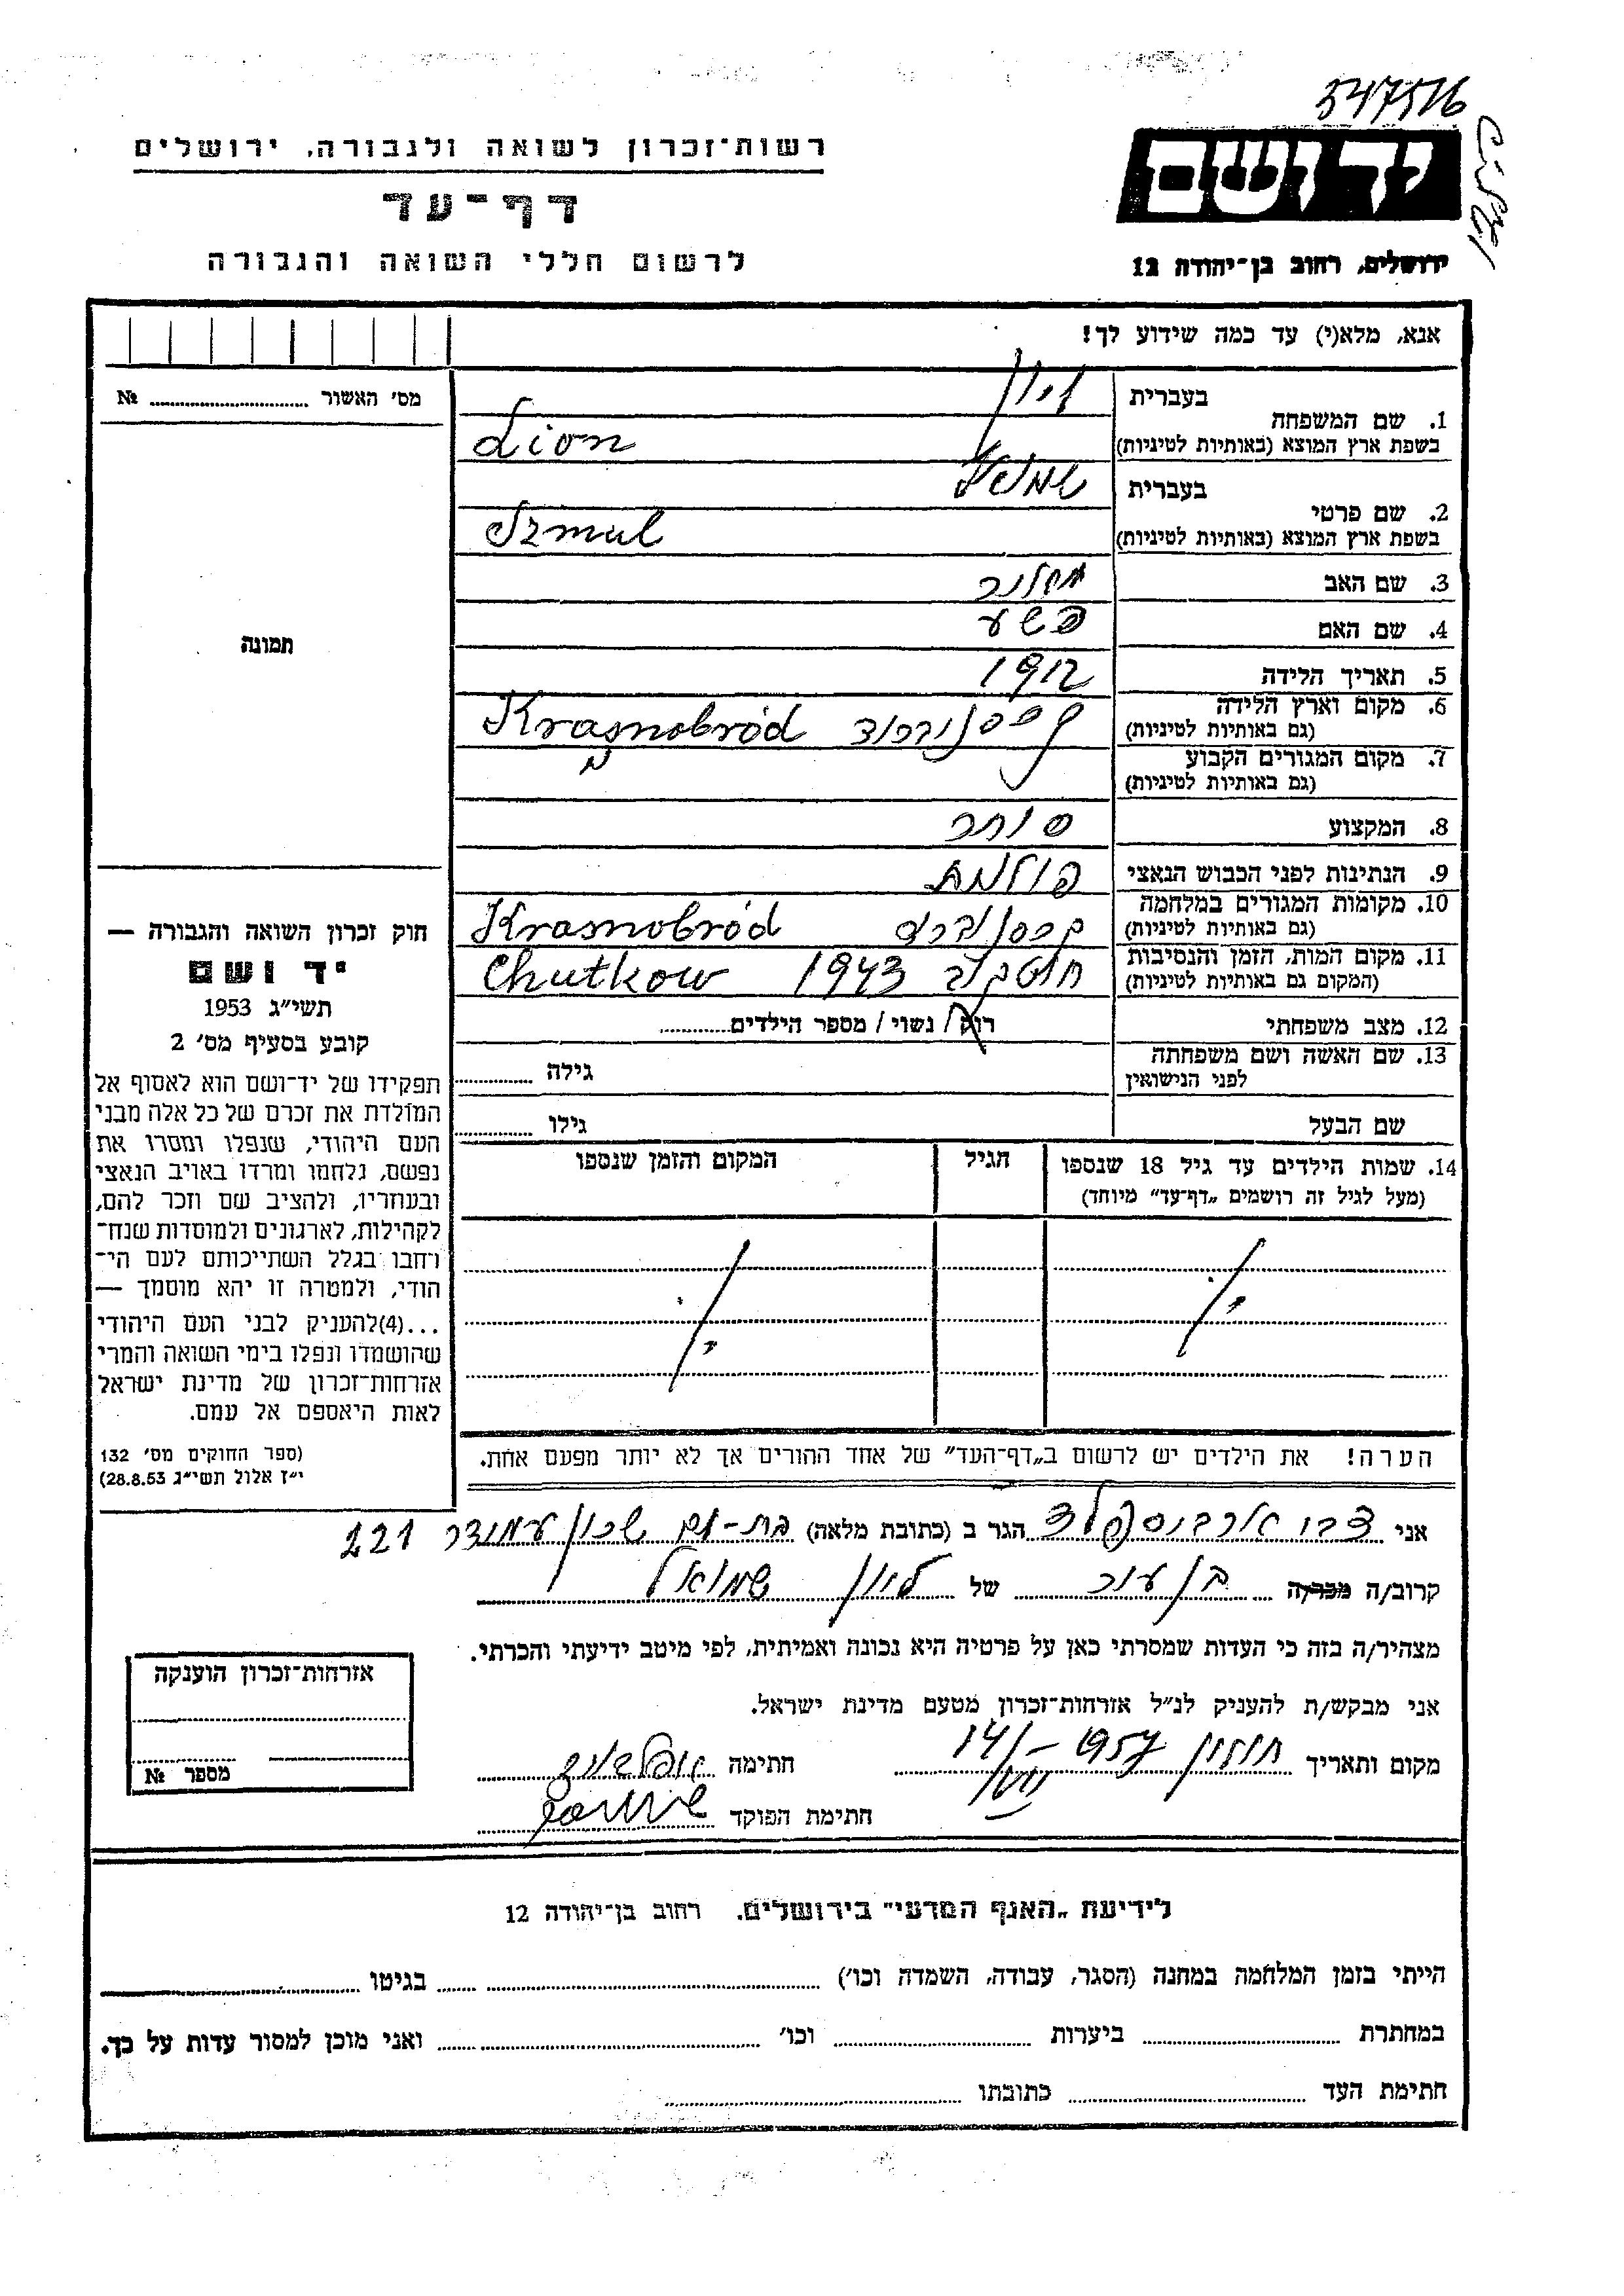 547516
רשות־זכרון לשואה ולגבורה, ירושלים
יד ושם
דף־עד
לרשום חללי השואה והגבורה
ירושלים, רחוב בן־יהודה 12
אנא, מלא(י) עד כמה שידוע לך!
מס' האשור № 
בעברית ליון
1. שם המשפחה
בשפת ארץ המוצא (באותיות לטיניות) Lion
בעברית שמואל
2. שם פרטי
בשפת ארץ המוצא (באותיות לטיניות) Szmul
3. שם האב
4. שם האם
5. תאריך הלידה 1912
6. מקום וארץ הלידה
(גם באותיות לטיניות) קרסנוברוד Krasnobród
7. מקום המגורים הקבוע
(גם באותיות לטיניות)
8. המקצוע סוחר
9. הנתינות לפני הכבוש הנאצי פולנית
10. מקומות המגורים במלחמה
(גם באותיות לטיניות) קרסנוברוד Krasnobród
11. מקום המות, הזמן והנסיבות
(המקום גם באותיות לטיניות) חוטקוב 1943 Chutkow
12. מצב משפחתי רוק / נשוי / מספר הילדים
13. שם האשה ושם משפחתה
לפני הנישואין גילה
שם הבעל גילו
14. שמות הילדים עד גיל 18 שנספו
(מעל לגיל זה רושמים „דף־עד” מיוחד)
הגיל
המקום והזמן שנספו
הערה! את הילדים יש לרשום ב„דף־העד” של אחד ההורים אך לא יותר מפעם אחת.
תמונה
חוק זכרון השואה והגבורה —
יד ושם
תשי"ג 1953
קובע בסעיף מס' 2
תפקידו של יד־ושם הוא לאסוף אל
המולדת את זכרם של כל אלה מבני
העם היהודי, שנפלו ומסרו את
נפשם, נלחמו ומרדו באויב הנאצי
ובעוזריו, ולהציב שם וזכר להם,
לקהילות, לארגונים ולמוסדות שנח־
רחבו בגלל השתייכותם לעם הי־
הודי, ולמטרה זו יהא מוסמך —
...(4)להעניק לבני העם היהודי
שהושמדו ונפלו בימי השואה והמרי
אזרחות־זכרון של מדינת ישראל
לאות היאספם אל עמם.
(ספר החוקים מס' 132
י"ז אלול תשי"ג 28.8.53)
אני צבי הגר ב (כתובת מלאה) בת-ים שכון עמידר 221
קרוב/ה מכר/ה בן של ליון שמואל
מצהיר/ה בזה כי העדות שמסרתי כאן על פרטיה היא נכונה ואמיתית, לפי מיטב ידיעתי והכרתי.
אני מבקש/ת להעניק לנ"ל אזרחות־זכרון מטעם מדינת ישראל.
מקום ותאריך חולון 1957 14/VII חתימה
חתימת הפוקד
אזרחות־זכרון הוענקה
מספר №
לידיעת „האגף המדעי” בירושלים. רחוב בן־יהודה 12
הייתי בזמן המלחמה במחנה (הסגר, עבודה, השמדה וכו') בגיטו
במחתרת ביערות וכו' ואני מוכן למסור עדות על כך.
חתימת העד כתובתו